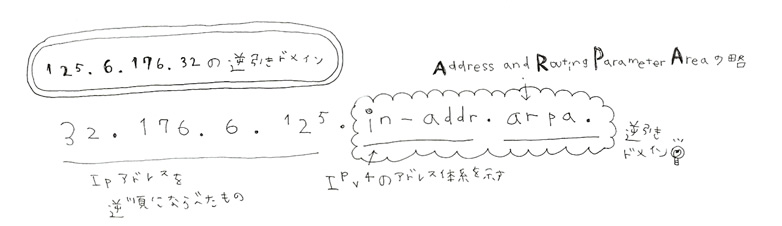 125.6.176.32の逆引きドメイン
Address and Routing Parameter Areaの略
32.176.6.125.in-addr.arpa.
逆引き
ドメイン
IPアドレスを
逆順にならべたもの
IPv4のアドレス体系を示す